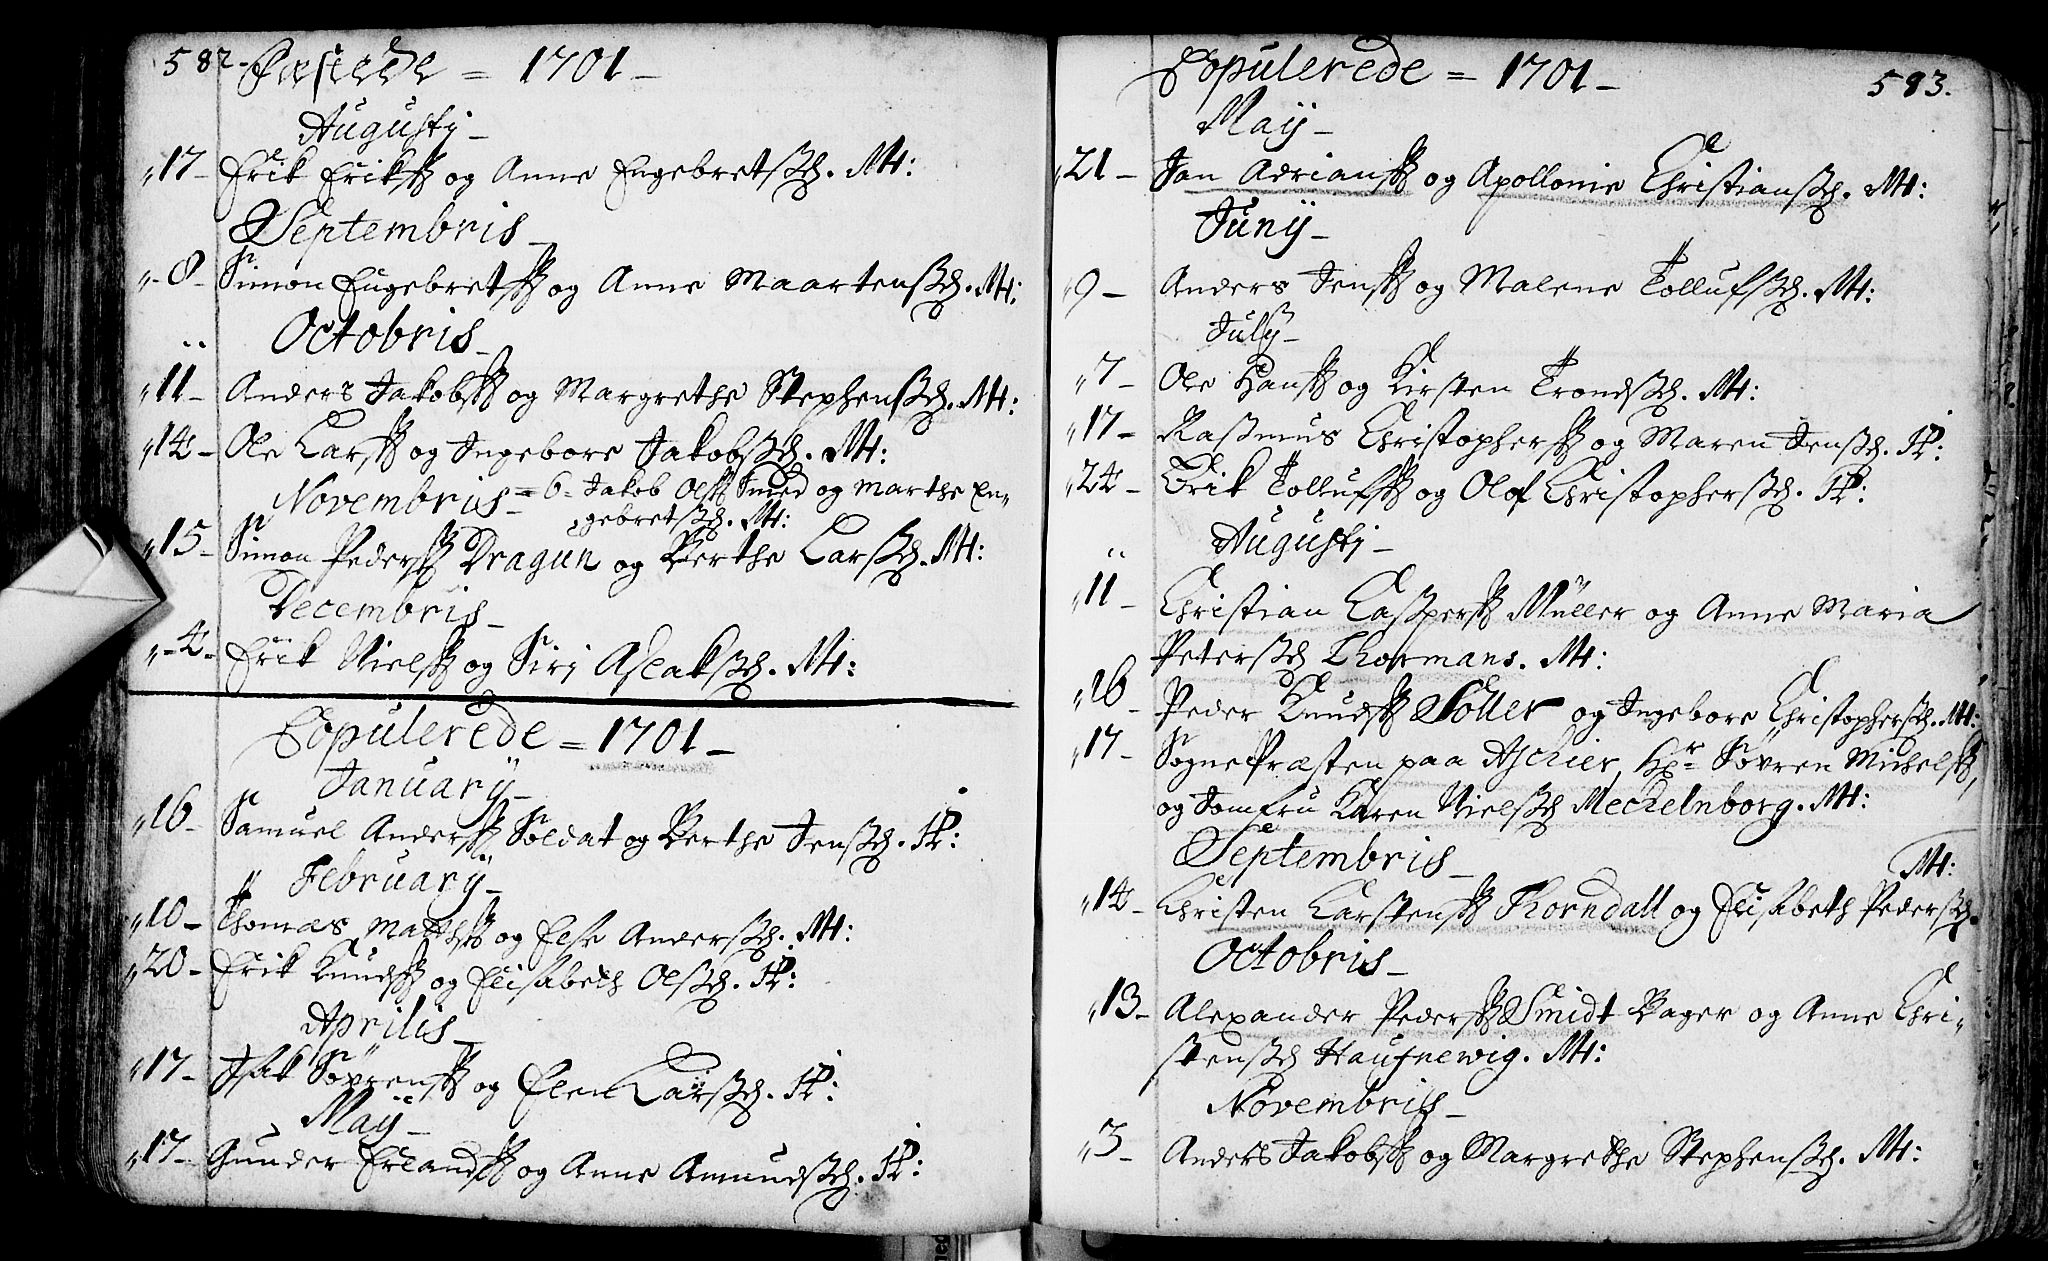 582. Festede = 1701 –
Augustj –
17 – Erik Eriks. og Anne Engebretsd. M:
Septembris –
8 – Simon Engebrets. og Anne Maartensd. M:
Octobris –
11 – Anders Jakobs. og Margrethe Stephensd. M:
14 – Ole Lars. og Ingebore Jakobsd. M:
Novembris – = 6 = Jakob Ols. Smed og Marthe En=
gebretsd. M:
15 – Simon Peders. Dragun og Berthe Larsd. M:
Decembris –
4 – Erik Niels. og Siri Aslaksd. M:
Copulerede = 1701 –
Januarij –
16 – Samuel Anders. Soldat og Berthe Jensd. P:
Februarij –
10 – Thomas Matths. og Else Andersd. M:
20 – Erik Knuds. og Elisabeth Olsd. P:
Aprilis –
17 – Isak Sövrens. og Elen Larsd. P:
Maij –
17 – Gunder Erlands. og Anne Amundsd. P:
Copulerede = 1701 – 583.
Maij –
21 – Jan Adrians. og Apollonie Christiansd. M:
Junij –
9 – Anders Jens. og Malene Tollufsd. M:
Julij –
7 – Ole Hans. og Kirsten Trondsd. M:
17 – Rasmus Christophers. og Maren Jensd. P:
24 – Erik Tollufs. og Olof Christophersd. P:
Augustj –
11 – Christian Caspers. Müller og Anne Maria
Petersd. Thormans. M:
16 – Peder Knuds. Soller og Ingebore Christophersd. M:
17 – Sogne Præsten paa Aschier, Hr Sövren Michels.,
og Jomfru Karen Nielsd. Meckelnborg. M:
Septembris –
M:
14 – Christen Carstens. Thorndall og Elisabeth Pedersd.
Octobris –
13 – Alexander Peders. Smidt Bager og Anne Chri=
stensd. Haufnewig. M:
Novembris –
3 – Anders Jakobs. og Margrethe Stephensd. M: